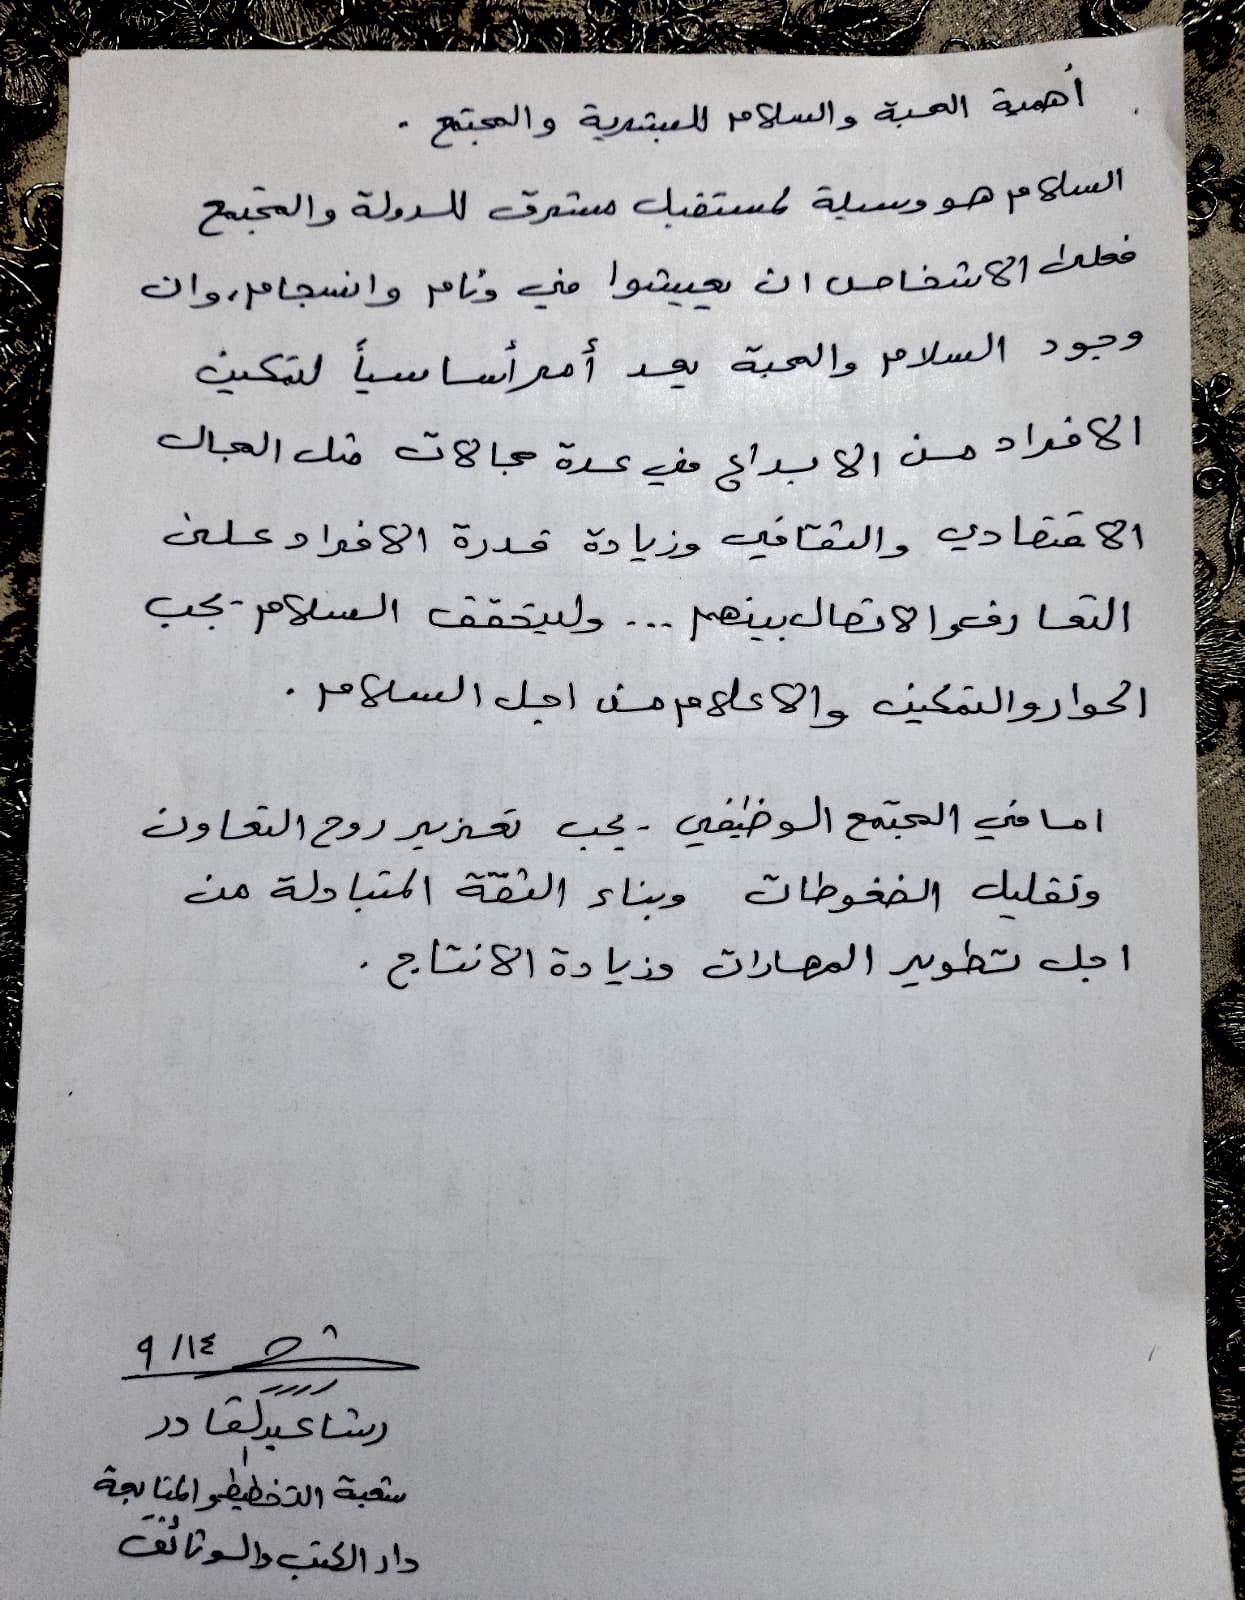 أهمية المحبة والسلام للبشرية والمجتمع .
السلام هو وسيلة لمستقبل مشرق للدولة والمجتمع
فعلى الاشخاص ان يعيشوا في وئام وانسجام، وان
وجود السلام والمحبة يعد أمر أساسياً لتمكين
الافراد من الابداع في عدة مجالات مثل المجال
الاقتصادي والثقافي وزيادة قدرة الافراد على
التعارف والاتصال بينهم ... وليتحقق السلام - يجب
الحوار والتمكين والاعلام من اجل السلام .
اما في المجتمع الوظيفي - يجب تعزيز روح التعاون
وتقليل الضغوطات وبناء الثقة المتبادلة من
اجل تطوير المهارات وزيادة الانتاج .
٩/١٤
رشا عبد القادر
شعبة التخطيط والمتابعة
دار الكتب والوثائق